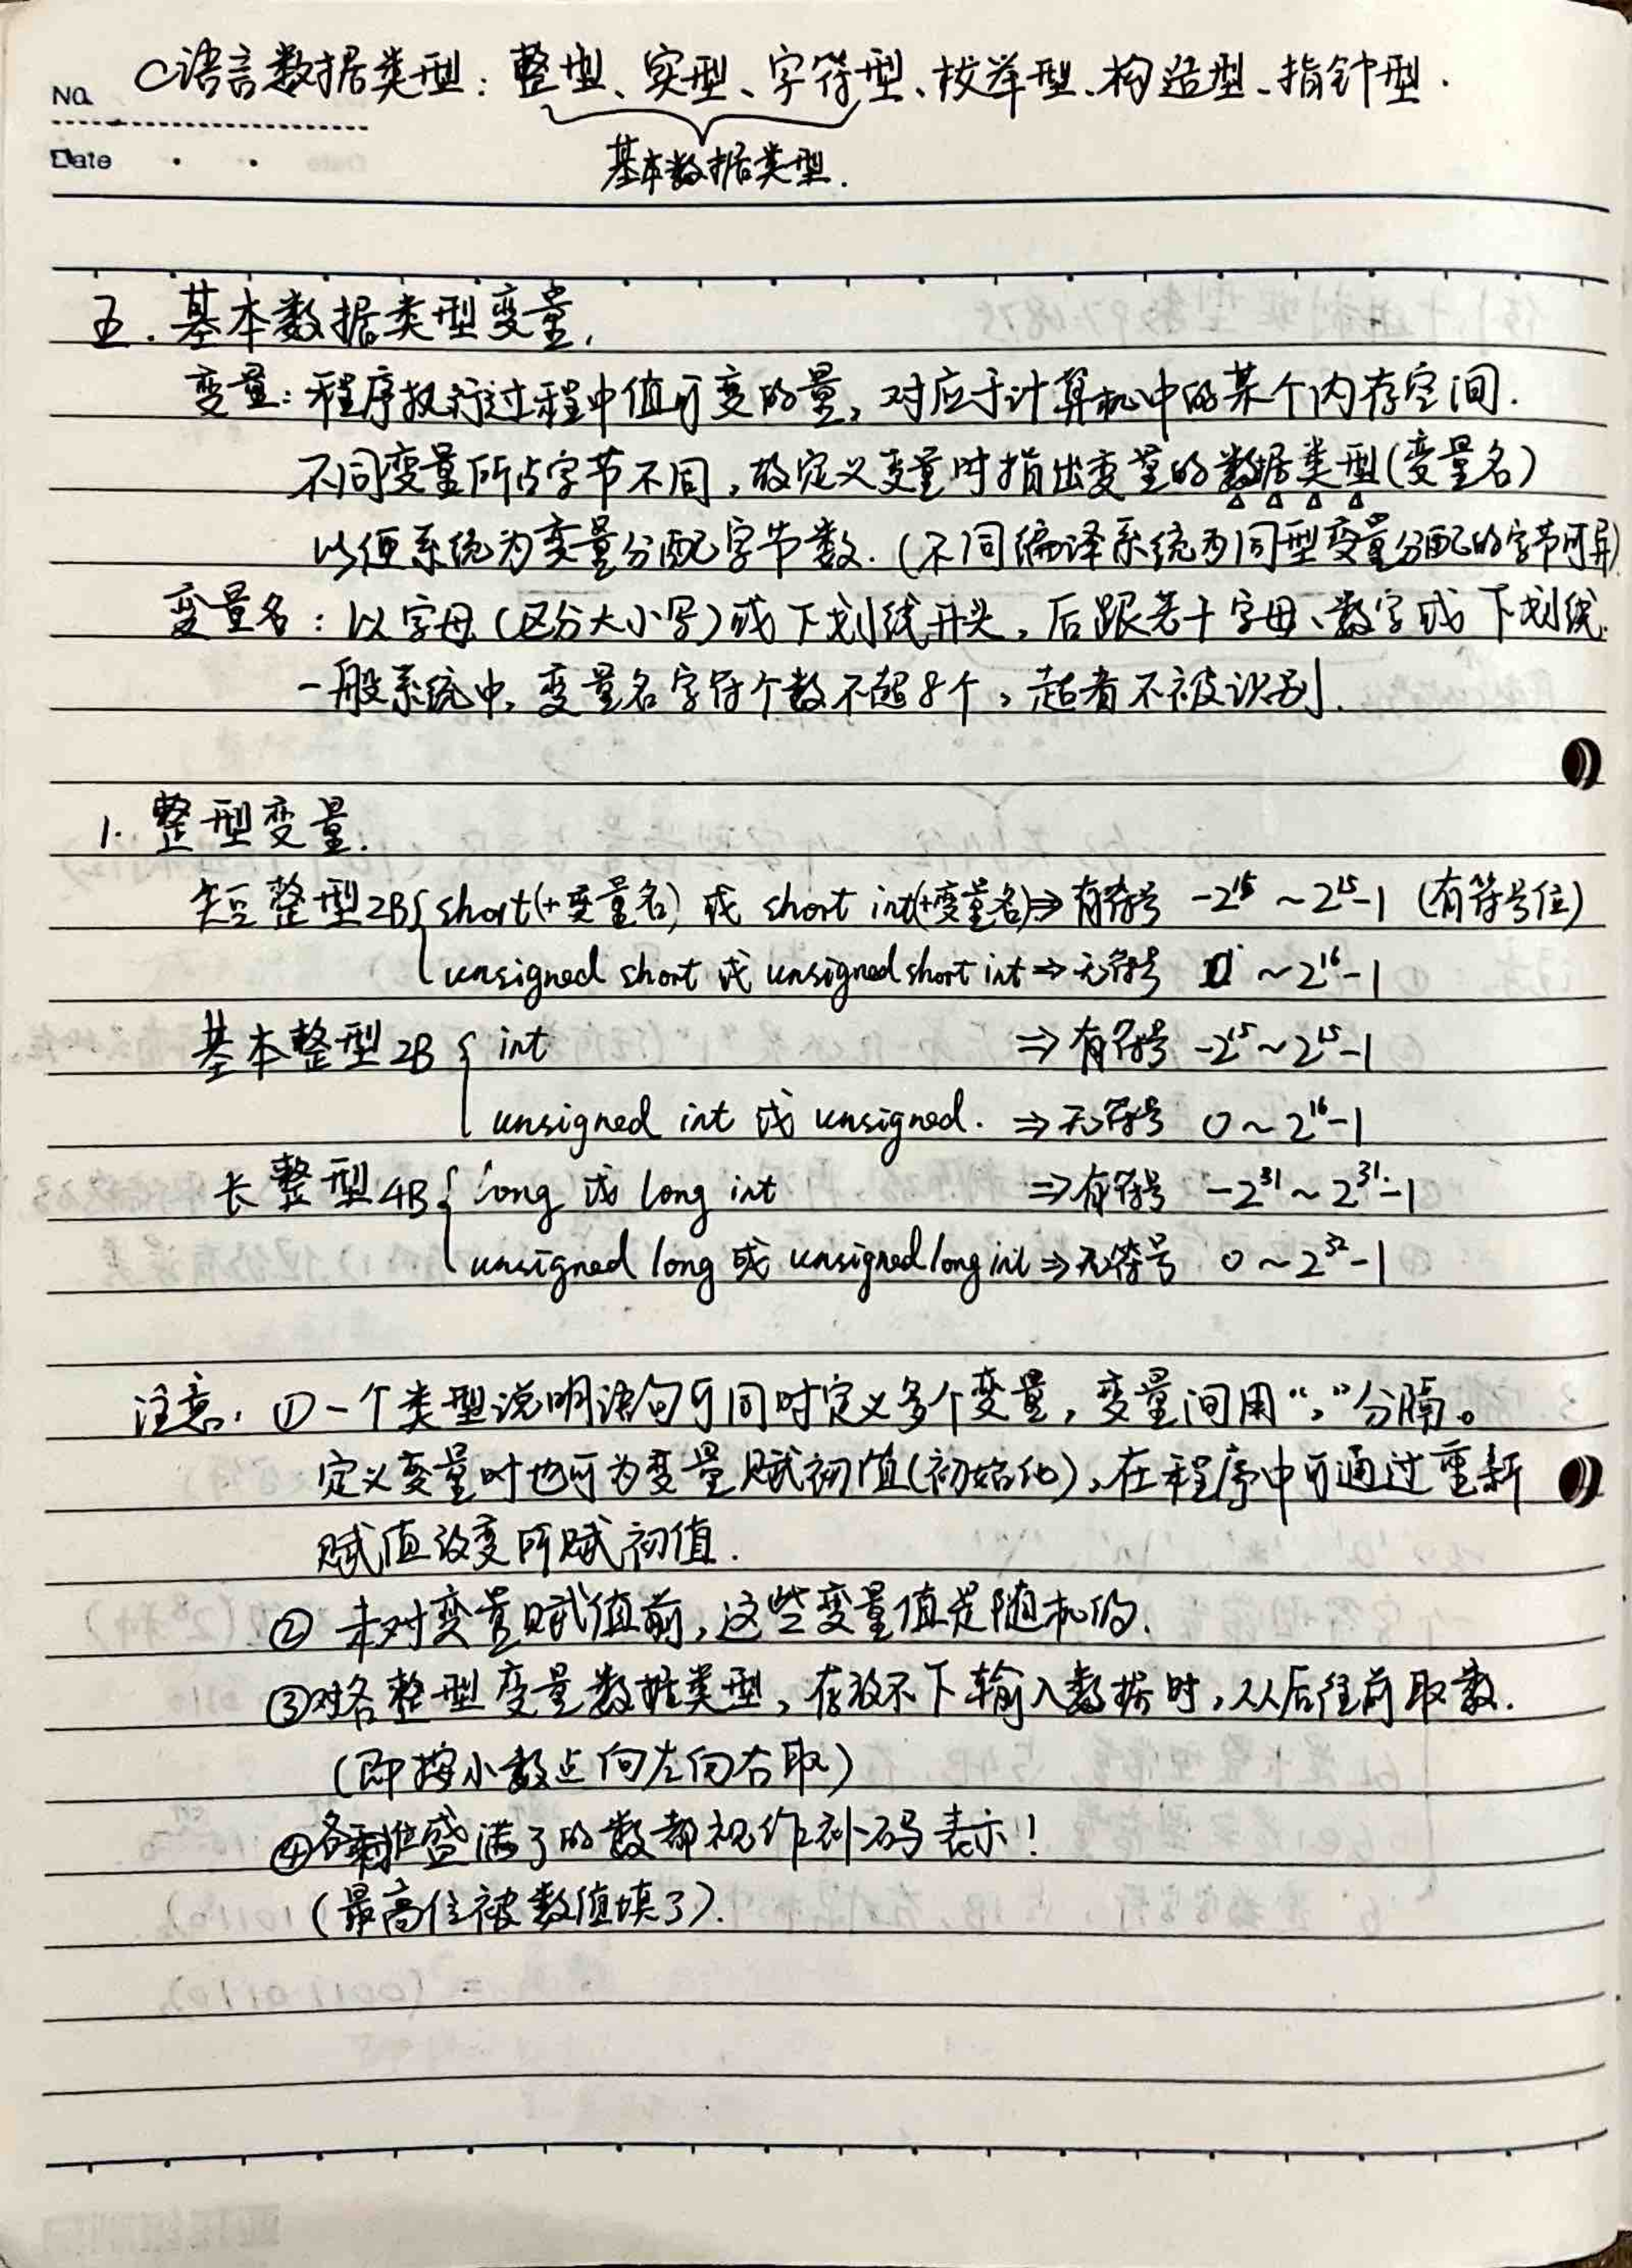 C语言数据类型：整型、实型、字符型、枚举型、构造型、指针型.
No.
基本数据类型.
Date
五. 基本数据类型变量.
变量：程序执行过程中值可变的量，对应于计算机中的某个内存空间.
不同变量所占字节不同，故定义变量时指出变量的数据类型(变量名)
以便系统为变量分配字节数.(不同编译系统为同型变量分配的字节可异)
变量名：以字母(区分大小写)或下划线开头，后跟若干字母、数字或下划线.
一般系统中，变量名字符个数不超8个，超者不被识别.
1. 整型变量.
短整型2B{ short(+变量名) 或 short int(+变量名)⇒有符号 -2^15 ~ 2^15-1 (有符号位)
unsigned short 或 unsigned short int ⇒ 无符号 0 ~ 2^16-1
基本整型2B { int ⇒ 有符号 -2^15 ~ 2^15-1
unsigned int 或 unsigned. ⇒ 无符号 0 ~ 2^16-1
长整型4B { long 或 long int ⇒ 有符号 -2^31 ~ 2^31-1
unsigned long 或 unsigned long int ⇒ 无符号 0 ~ 2^32-1
注意：①一个类型说明语句可同时定义多个变量，变量间用“，”分隔。
定义变量时也可为变量赋初值(初始化)，在程序中可通过重新
赋值改变所赋初值.
② 未对变量赋值前，这些变量值是随机的.
③对各整型变量数据类型，存放不下输入数据时，从后往前取数.
(即按小数点向左向右取)
④各盛满了的数都视作补码表示！
(最高位被数值填了).